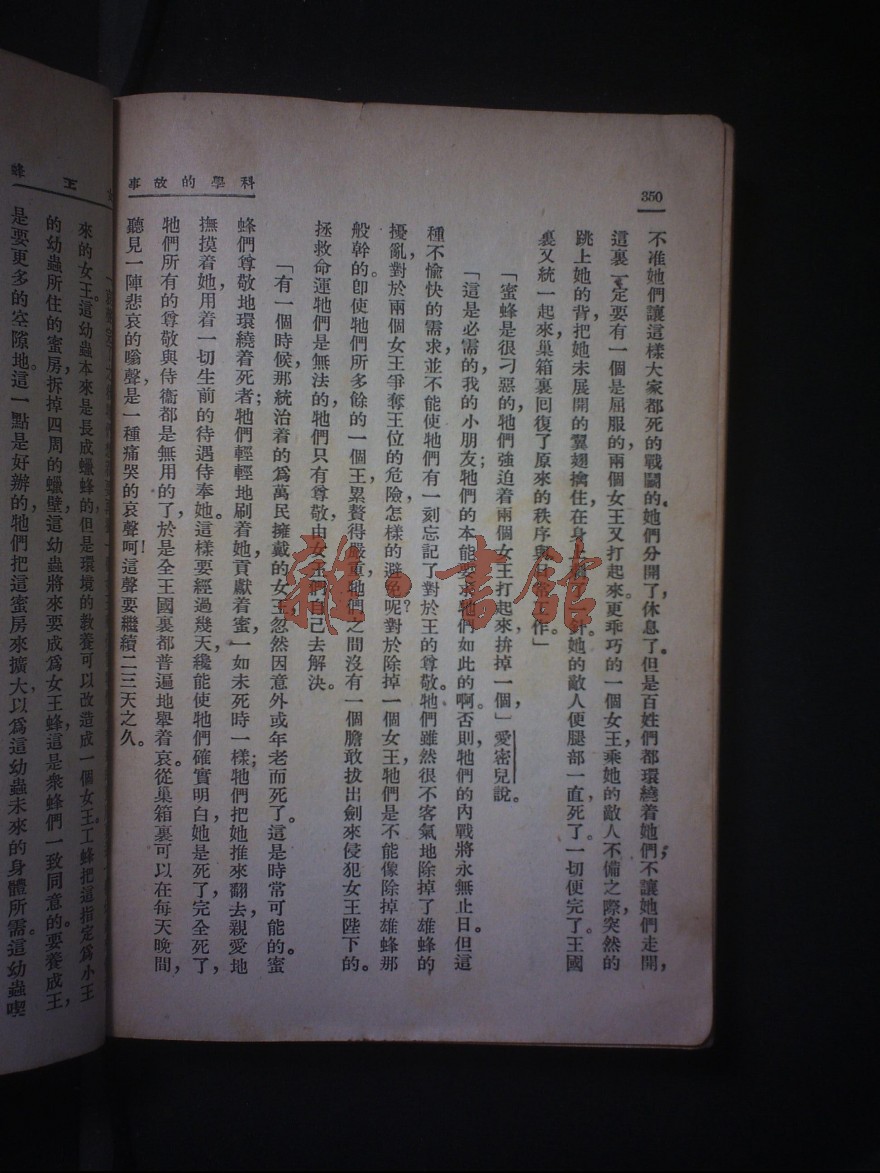 350
科學的故事
不准她們讓這樣大家都死的戰鬭的。她們分開了，休息了。但是百姓們都環繞着她們，不讓她們走開，
這裏一定要有一個是屈服的，兩個女王又打起來。更乖巧的一個女王，乘她的敵人不備之際，突然的
跳上她的背，把她未展開的翼翅擒住，在身上刺了一針。她的敵人便腿部一直，死了。一切便完了。王國
裏又統一起來，巢箱裏囘復了原來的秩序與日常工作。」
「蜜蜂是很刁惡的，牠們強迫着兩個女王打起來，拚掉一個，」愛密兒說。
「這是必需的，我的小朋友；牠們的本能要求牠們如此的啊。否則，牠們的內戰將永無止日。但這
種不愉快的需求，並不能使牠們有一刻忘記了對於王的尊敬。牠們雖然很不客氣地除掉了雄蜂的
擾亂，對於兩個女王爭奪王位的危險，怎樣的避免呢？對於除掉一個女王，牠們是不能像除掉雄蜂那
般幹的。卽使牠們所多餘的一個王，累贅得嚴重，牠們之間沒有一個膽敢拔出劍來侵犯女王陛下的。
拯救命運牠們是無法的，牠們只有尊敬，由女王們自己去解決。
「有一個時候，那統治着的爲萬民擁戴的女王，忽然因意外或年老而死了。這是時常可能的。蜜
蜂們尊敬地環繞着死者；牠們輕輕地刷着她，貢獻着蜜，一如未死時一樣；牠們把她推來翻去，親愛地
撫摸着她，用着一切生前的待遇侍奉她。這樣要經過幾天，纔能使牠們確實明白，她是死了，完全死了，
牠們所有的尊敬與侍衞都是無用的了，於是全王國裏都普遍地舉着哀。從巢箱裏可以在每天晚間，
聽見一陣悲哀的嗡聲，是一種痛哭的哀聲呵！這聲要繼續二三天之久。
王蜂
來的女王。這幼蟲本來是長成蠟蜂的，但是環境的教養可以改造成一個女王。工蜂把這指定爲小王
的幼蟲所住的蜜房，拆掉四周的蠟壁，這幼蟲將來要成爲女王蜂，這是衆蜂們一致同意的。要養成王，
是要更多的空隙地。這一點是好辦的，牠們把這蜜房來擴大，以爲這幼蟲未來的身體所需。這幼蟲喫
雜·書館